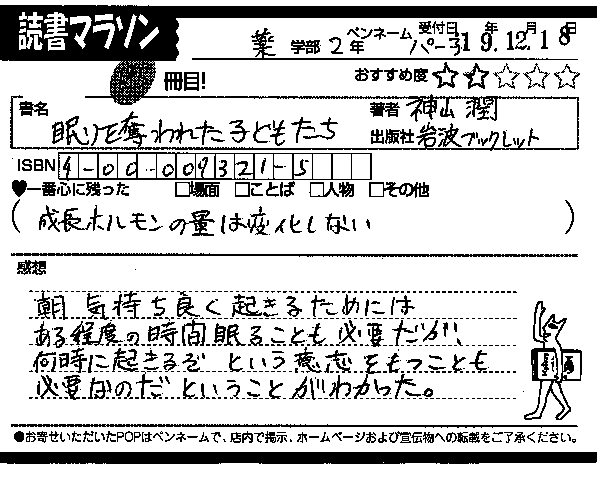 読書マラソン
薬 学部 2年 ペンネーム パーヨ 受付日 19年12月18日
冊目! おすすめ度 ★★☆☆☆
書名 眠りを奪われた子どもたち
著者 神山 潤
出版社 岩波ブックレット
ISBN 4-00-009321-5
♥一番心に残った □場面 □ことば □人物 □その他
(成長ホルモンの量は変化しない)
感想
朝 気持ち良く起きるためには
ある程度の時間眠ることも必要だが、
何時に起きるぞ という意志をもつことも
必要なのだ ということがわかった。
●お寄せいただいたPOPはペンネームで、店内で掲示、ホームページおよび宣伝物への転載をご了承ください。